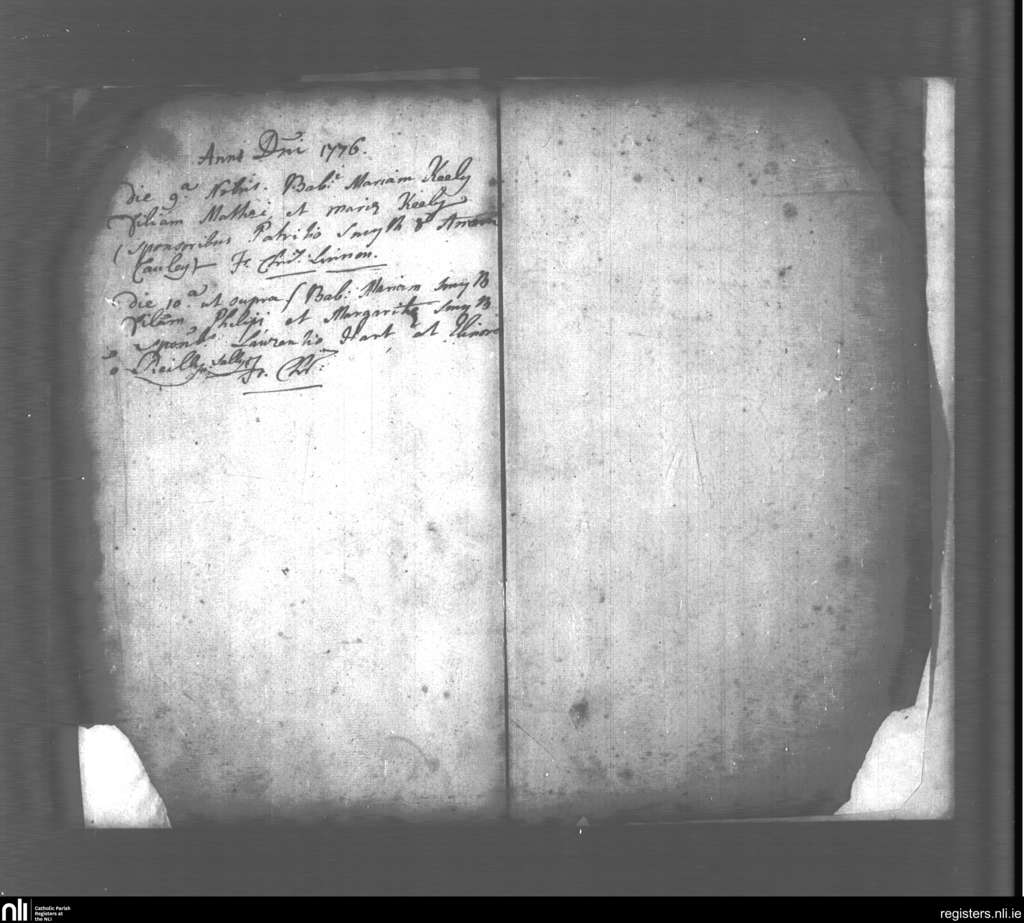 Anno Dñi 1776.
Die 9.a Nrbis. Bab.i Mariam Keely
Filiam Mathei et mariæ Keely
(sponsoribus Patritio Smyth &
Cauley) Fr
Die 10.a ut supra Bab.i Mariam Smyth
Filiam Philipi et Margaritæ Smyth
spons Laurentio Hart et Elinora
o Reilly
nli Catholic Parish
Registers at
the NLI
registers.nli.ie